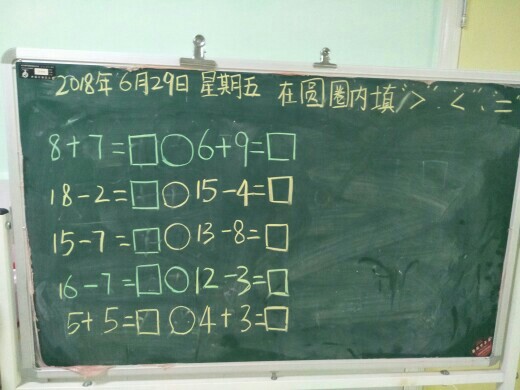 2018年6月29日 星期五 在圆圈内填">"."<"."="
8+7=□○6+9=□
18-2=□○15-4=□
15-7=□○13-8=□
16-7=□○12-3=□
5+5=□○4+3=□